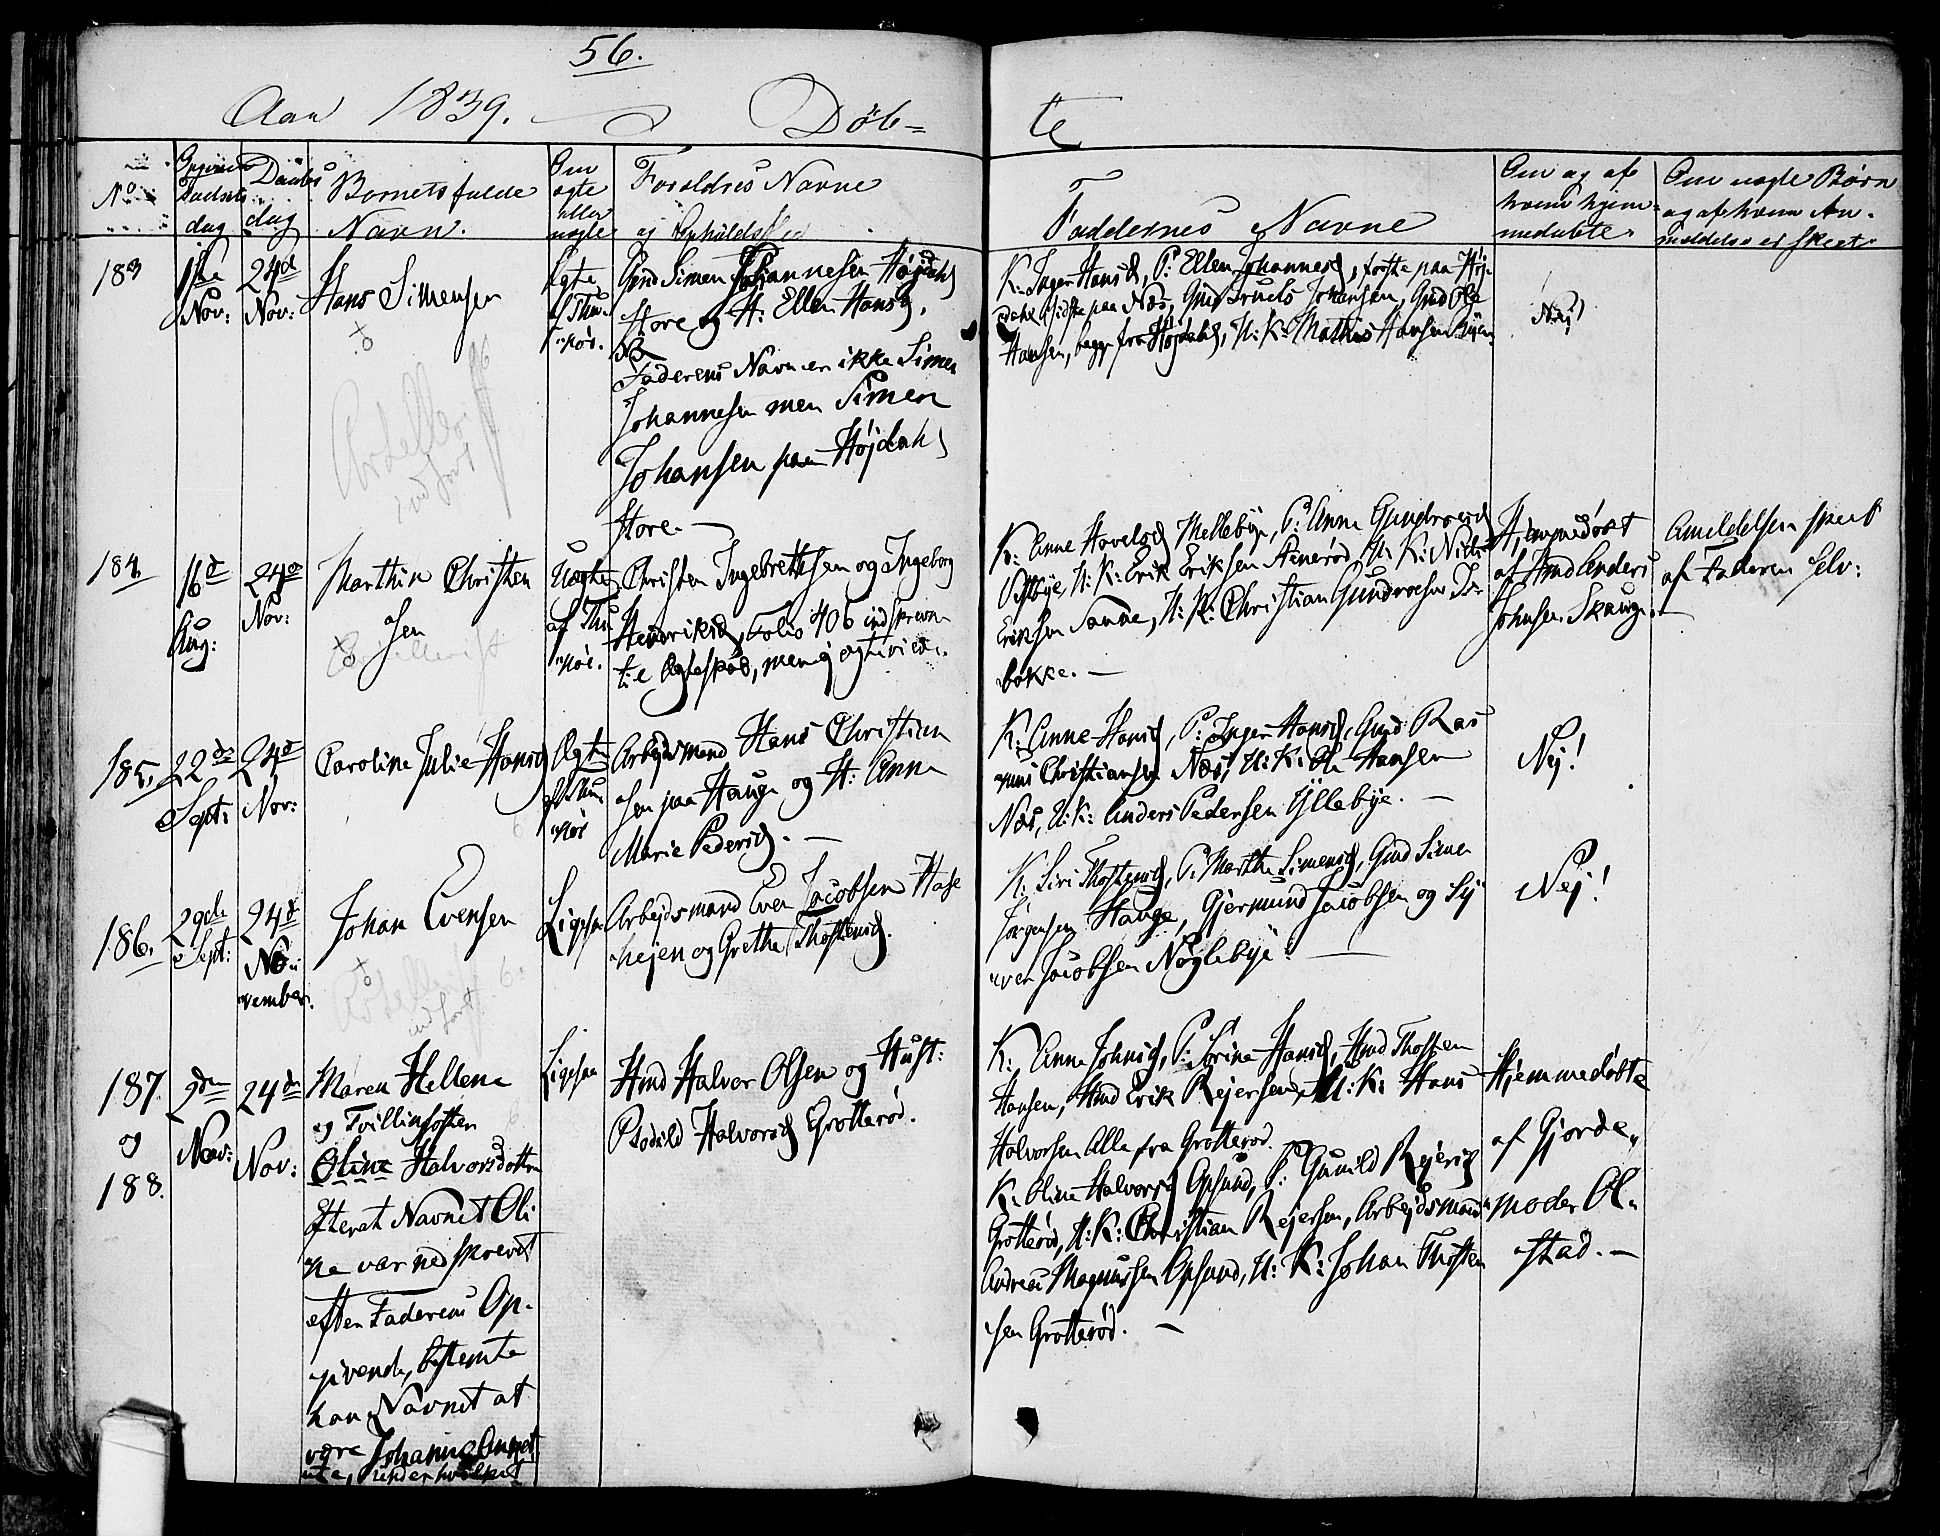 56.
Aar 1839. Døb-
te
No
dag
Daabs
dag
Barnets fulde
Navn.
Om
ægte
eller
uægte
Forældres Navne
og Opholds
Faddernes Navne
Om og af
hvem hjem-
medøbte.
Om uægte Børn
og af hvem An-
meldelse er skeet.
183
1ste
Nov:
24d
Nov:
Hans Simensen
Ægte
af Thu-
nøe.
Gmd Simen Johannesen Højdahl
Store og H: Ellen Hansd.
NB
Faderens Navn er ikke Simen
Johannesen men Simen
Johansen paa Højdahl
Store. —
K: Inger Hansd, P: Ellen Johannesd, første paa Høj-
dahl sidste paa Næs, Gmd Truels Johansen, Gmd Ole
Hansen, begge fra Højdahl, U: K: Mathis Hansen Byen
Nej
184.
16d
Aug:
24d
Nov:
Marthin Christen
sen
Uægte
af Thu
nøe.
Christen Ingebrethsen og Ingeborg
Hendriksd, Folio 406 indskrevn
til Ægteskab, men ej egteviede.
K: Anne Hovelsd Mellebye, P: Anne Gundrosd
Vestbye, U: K: Erik Eriksen Aenerød, U: K: Niels
Eriksen Sande, U: K: Christian Gundrosen
bakke. —
Hjemmedøbt
af Gmd Anders
Johnsen Skauge.
Anmeldelsen skeet
af Faderen selv:
185.
22de
Sept:
24d
Nov:
Caroline Julie Hansd
Ægte
af Thu
nøe
Arbejdsmand Hans Christian
sen paa Hauge og H: Anne
Marie Pedersd. —
K: Anne Hansd, P: Inger Hansd, Gmd Ras
mus Christiansen Næs, U: K: Ole Hansen
Næs, U: K: Anders Pedersen Gyllebye. —
Nej!
186.
29de
Sept:
24d
No-
vember.
Johan Evensen
Ligesaa
Arbejdsmand Even Jacobsen Hase
hejen og Grethe Thostensd.
K: Siri Thostensd, P: Marthe Simensd, Gmd Simen
Jørgensen Hauge, Gjermund Jacobsen og Sy
ver Jacobsen Nøglebye. —
Nej!
187.
og
188.
2den
Nov:
24de
Nov:
Maren Hellene
og Tvillingsøsten
Oline Halvorsdotter
Efterat Navnet Oli
ne var nedskrevet
efter Faderens Op-
givende, bestemte
han Navnet at
være Johanne Annet
Ligesaa
Gmd Halvor Olsen og Hust:
Bodild Halvorsd Grotterød.
K: Anne Johnsd, P: Sørine Hansd, Gmd Thosten
Hansen, Gmd Erik Rejersen, U: K: Hans
Halvorsen Alle fra Grotterød.
K: Oline Halvorsd Opsund, P: Gunild Rejersd
Grotterød, U: K: Christian Rejersen, Arbejdsmand
Andreas Magnussen Opsund, U: K: Johan Thosten
sen Grotterød. —
Hjemmedøbte
af Gjorde-
moder Ol-
stad. —